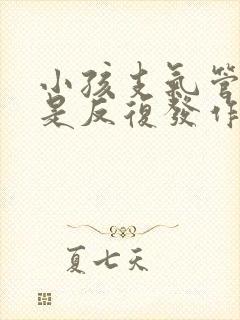 小孩支氣管
是反復發作
夏七天